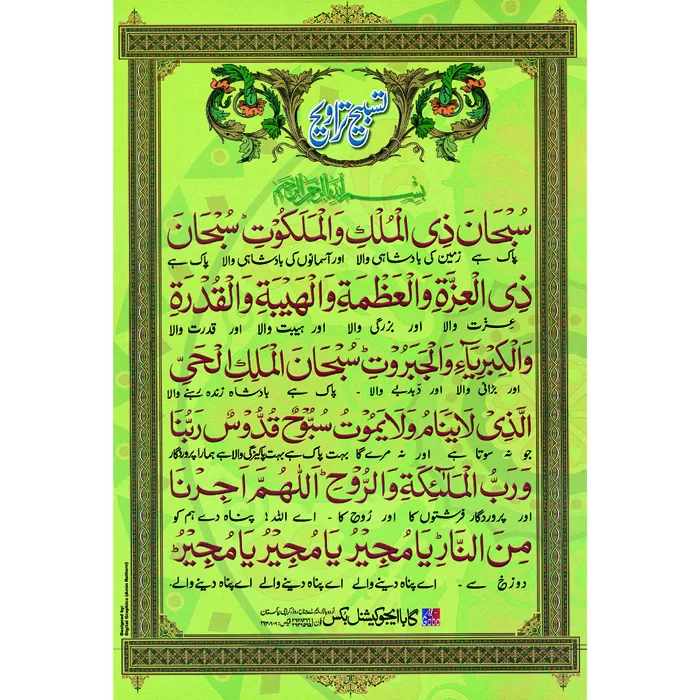 تسبیح تراویح
بسم اللہ الرحمن الرحیم
سُبْحَانَ ذِی الْمُلْكِ وَالْمَلَكُوْتِ ؕ سُبْحَانَ
پاک ہے زمین کی بادشاہی والا اور آسمانوں کی بادشاہی والا پاک ہے
ذِی الْعِزَّةِ وَالْعَظْمَةِ وَالْهَيْبَةِ وَالْقُدْرَةِ
عزّت والا اور بزرگی والا اور ہیبت والا اور قدرت والا
وَالْكِبْرِيَآءِ وَالْجَبَرُوْتِ ؕ سُبْحَانَ الْمَلِكِ الْحَیِّ
اور بڑائی والا اور دبدبے والا ۔ پاک ہے بادشاہ زندہ رہنے والا
الَّذِیْ لَا یَنَامُ وَلَا یَمُوْتُ سُبُّوْحٌ قُدُّوْسٌ رَبُّنَا
جو نہ سوتا ہے اور نہ مرے گا بہت پاک ہے بہت پاکیزگی والا ہے ہمارا پروردگار
وَرَبُّ الْمَلٰٓئِكَةِ وَالرُّوْحِ ؕ اَللّٰهُمَّ اَجِرْنَا
اور پروردگار فرشتوں کا اور رُوح کا ۔ اے اللہ! پناہ دے ہم کو
مِنَ النَّارِ ؕ یَا مُجِیْرُ یَا مُجِیْرُ یَا مُجِیْرُ ؕ
دوزخ سے ۔ اے پناہ دینے والے اے پناہ دینے والے اے پناہ دینے والے ۔
گابا ایجوکیشنل بکس
Designed by:
Digital Graphics